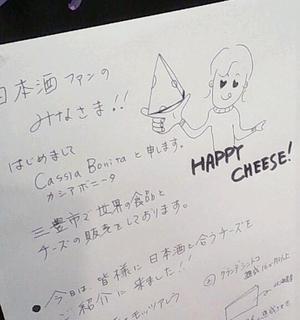 日本酒ファンの
みなさま!!
はじめまして
Cassia Bonita と申します。
カシアボニータ
三豊市で世界の食品と
チーズの販売をしております。
HAPPY
CHEESE!
●今日は、皆様に日本酒と合うチーズを
ご紹介に来ました!!
モッツアレラ
グランデュランド